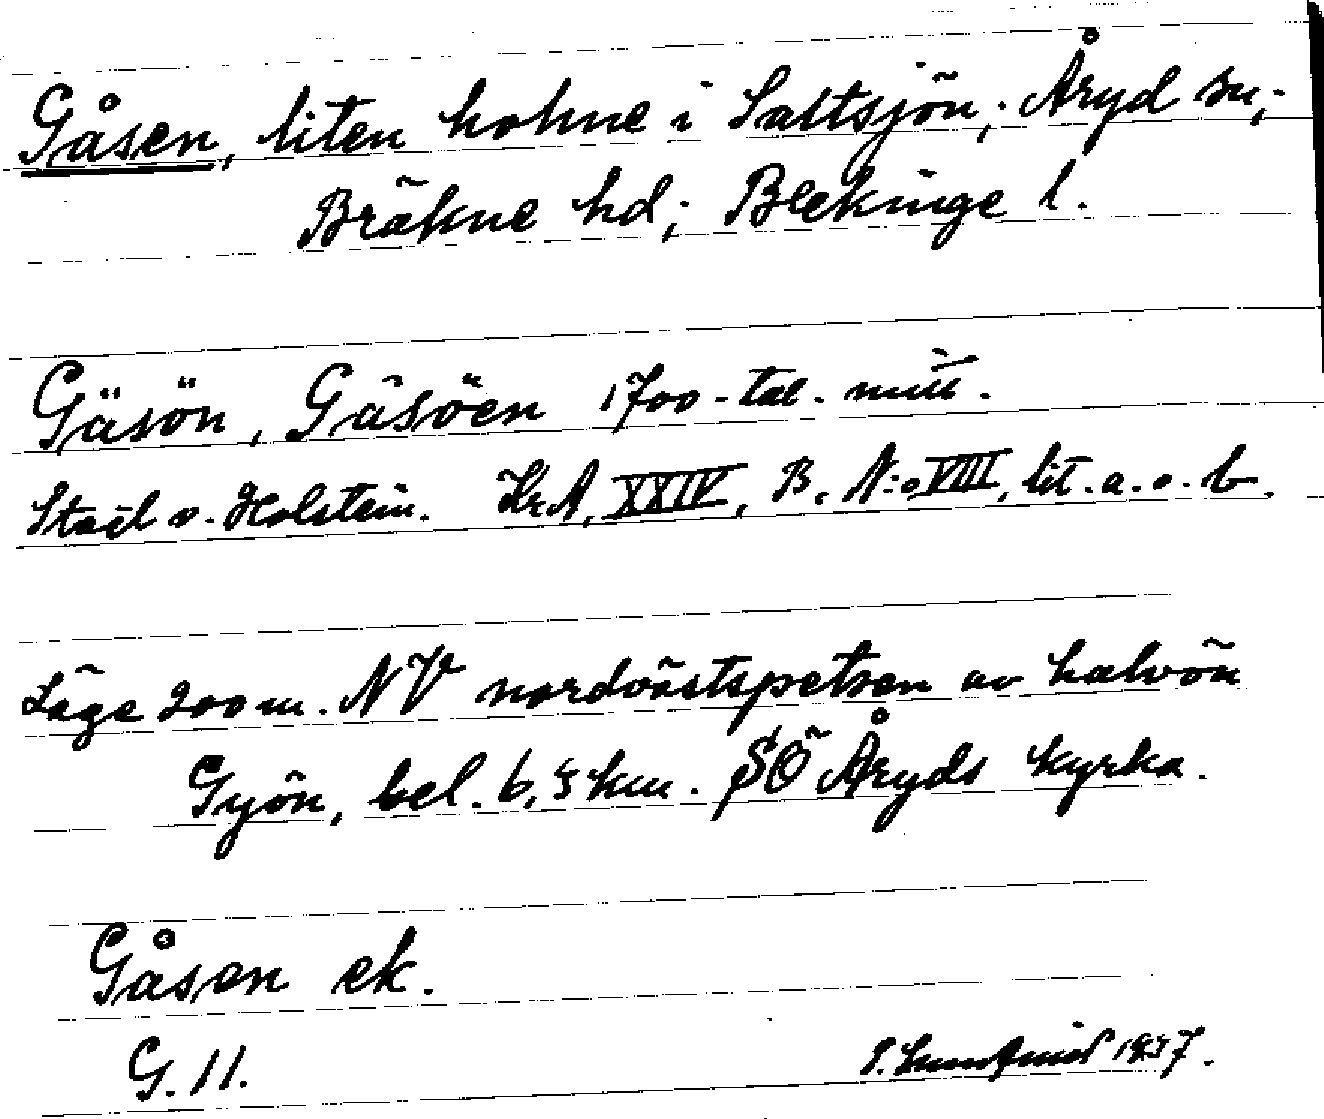 Gåsen, liten holme i Saltsjön; Åryd sn;
Bräkne hd; Blekinge l.
Gäsön, Gäsöen 1700-tal. mitt.
Stael v. Holstein. Kr.A, XXIV, B. N:o VIII, lit. a. o. b.
Läge 200 m. NV nordvästspetsen av halvön
Gyön, bel. 6,5 km. SÖ Åryds kyrka.
Gåsen ek.
G. 11.
1937.